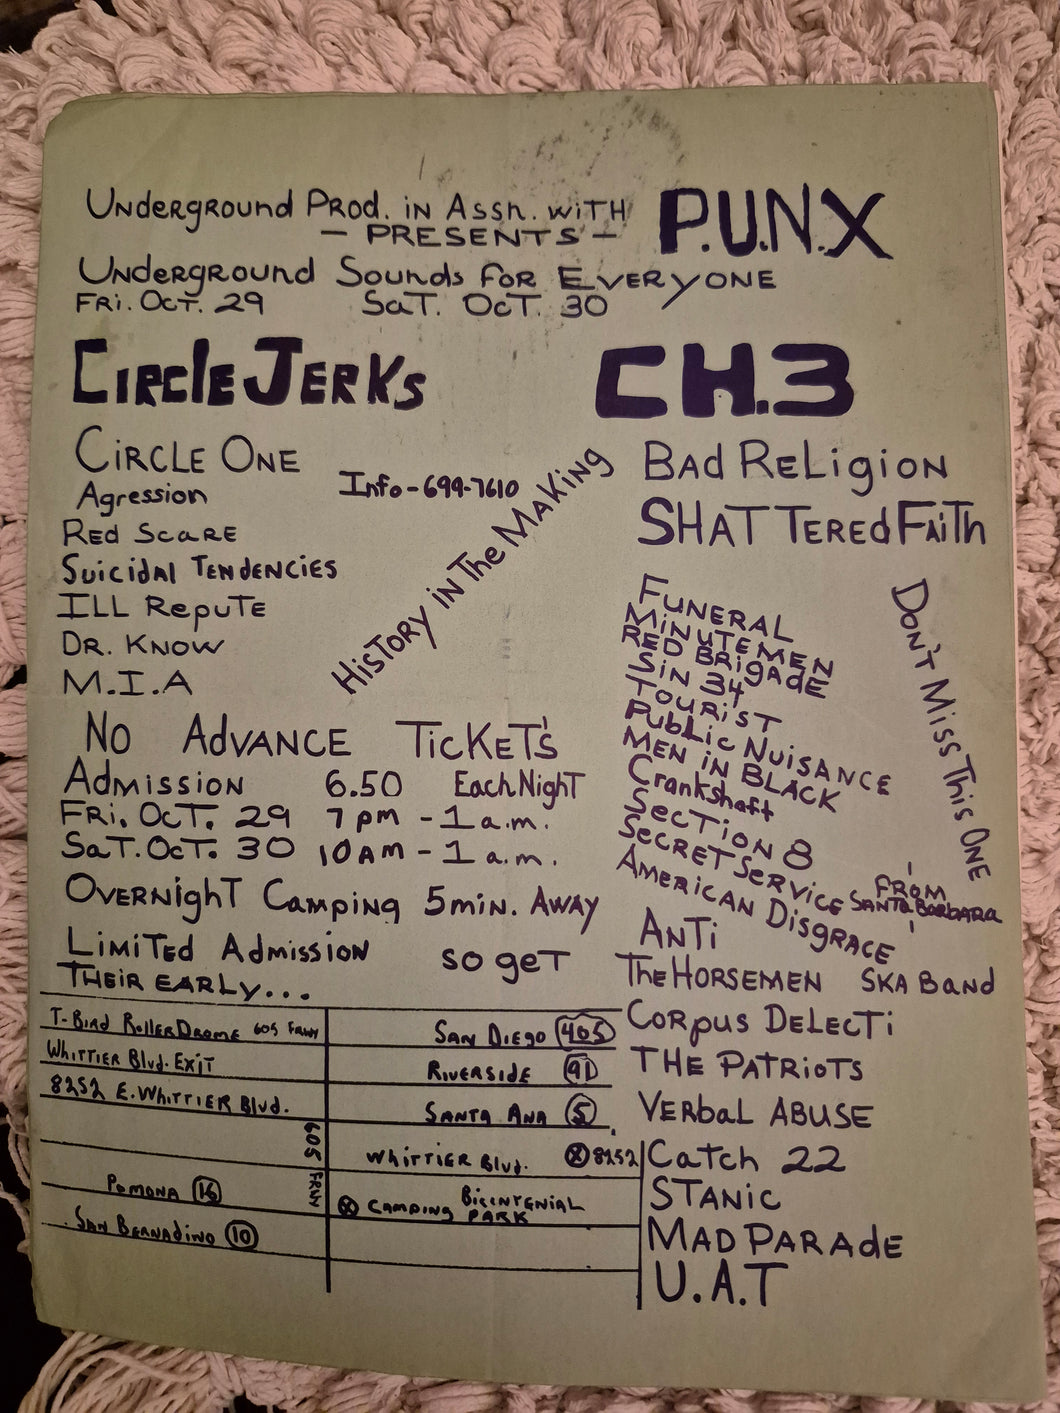 Underground Prod. in Assn. with P.U.N.X
- PRESENTS -
Underground Sounds for Everyone
Fri. Oct. 29 Sat. Oct. 30
Circle Jerks
Circle One
Agression
Info-699-7610
Red Scare
Suicidal Tendencies
Ill Repute
Dr. Know
M.I.A
History in The Making
CH.3
Bad Religion
Shattered Faith
Funeral
Minutemen
Red Brigade
Sin 34
Tourist
Public Nuisance
Men in Black
Crankshaft
Section 8
Secret Service from Santa Barbara
American Disgrace
Don't Miss This One
Anti
The Horsemen Ska Band
Corpus Delecti
The Patriots
Verbal Abuse
Catch 22
Stanic
Mad Parade
U.A.T
No Advance Ticket's
Admission 6.50 Each Night
Fri. Oct. 29 7pm - 1 a.m.
Sat. Oct. 30 10AM - 1 a.m.
Overnight Camping 5min. Away
Limited Admission so get
Their Early...
T-Bird Roller Drome 605 Frwy
Whittier Blvd. Exit
8252 E. Whittier Blvd.
605 Frwy
Pomona
San Bernadino 10
San Diego 405
Riverside 91
Santa Ana 5
Whittier Blvd. X 8252
X Camping Bicentenial Park